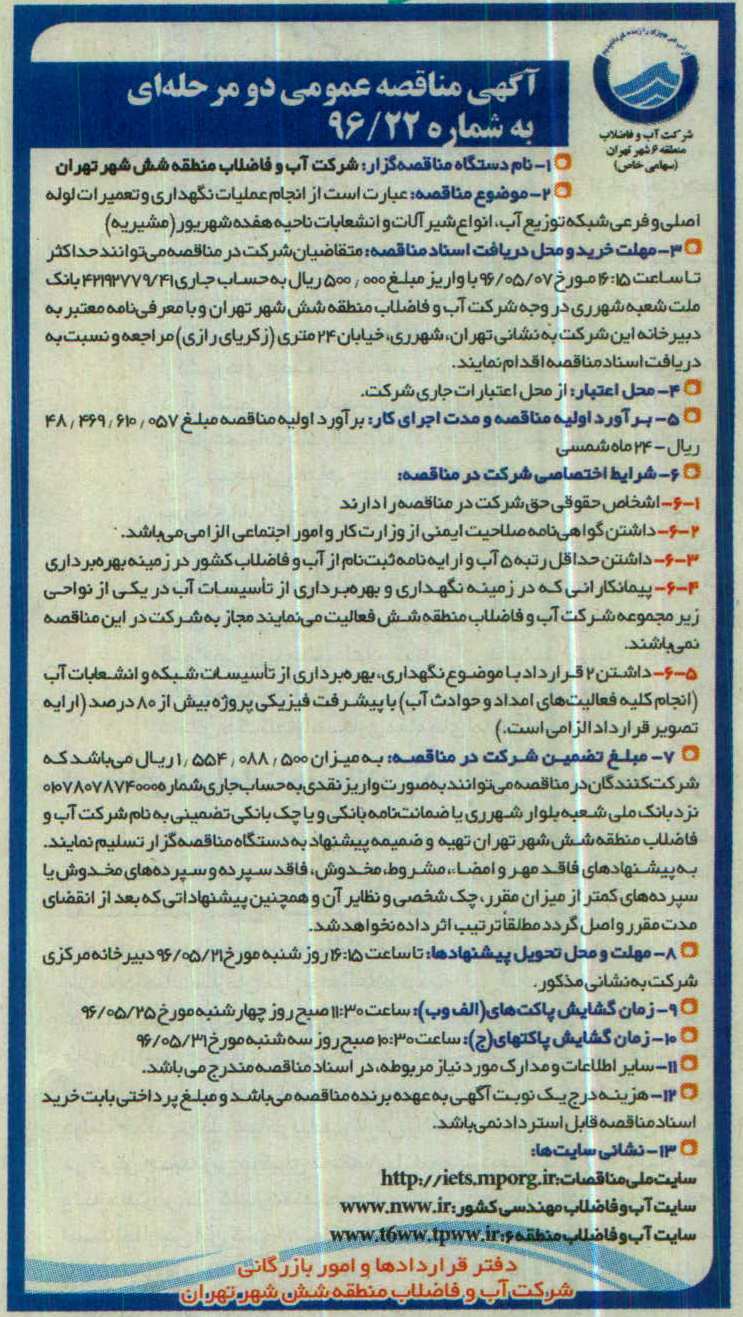 آگهی مناقصه عمومی دو مرحله‌ای
به شماره ۹۶/۲۲
شرکت آب و فاضلاب
منطقه ۶ شهر تهران
(سهامی خاص)
۱- نام دستگاه مناقصه‌گزار: شرکت آب و فاضلاب منطقه شش شهر تهران
۲- موضوع مناقصه: عبارت است از انجام عملیات نگهداری و تعمیرات لوله
اصلی و فرعی شبکه توزیع آب، انواع شیرآلات و انشعابات ناحیه هفده شهریور (مشیریه)
۳- مهلت خرید و محل دریافت اسناد مناقصه: متقاضیان شرکت در مناقصه می‌توانند حداکثر
تا ساعت ۱۶:۱۵ مورخ ۹۶/۰۵/۰۷ با واریز مبلغ ۵۰۰,۰۰۰ ریال به حساب جاری ۴۲۱۹۲۷۷۹/۴۱ بانک
ملت شعبه شهرری در وجه شرکت آب و فاضلاب منطقه شش شهر تهران و با معرفی‌نامه معتبر به
دبیرخانه این شرکت به نشانی تهران، شهرری، خیابان ۲۴ متری (زکریای رازی) مراجعه و نسبت به
دریافت اسناد مناقصه اقدام نمایند.
۴- محل اعتبار: از محل اعتبارات جاری شرکت.
۵- برآورد اولیه مناقصه و مدت اجرای کار: برآورد اولیه مناقصه مبلغ ۴۸,۴۶۹,۶۱۰,۰۵۷
ریال - ۲۴ ماه شمسی
۶- شرایط اختصاصی شرکت در مناقصه:
۶-۱- اشخاص حقوقی حق شرکت در مناقصه را دارند
۶-۲- داشتن گواهی‌نامه صلاحیت ایمنی از وزارت کار و امور اجتماعی الزامی می‌باشد.
۶-۳- داشتن حداقل رتبه ۵ آب و ارایه نامه ثبت‌نام از آب و فاضلاب کشور در زمینه بهره‌برداری
۶-۴- پیمانکارانی که در زمینه نگهداری و بهره‌برداری از تأسیسات آب در یکی از نواحی
زیر مجموعه شرکت آب و فاضلاب منطقه شش فعالیت می‌نمایند مجاز به شرکت در این مناقصه
نمی‌باشند.
۶-۵- داشتن ۲ قرارداد با موضوع نگهداری، بهره‌برداری از تأسیسات شبکه و انشعابات آب
(انجام کلیه فعالیت‌های امداد و حوادث آب) با پیشرفت فیزیکی پروژه بیش از ۸۰ درصد (ارایه
تصویر قرارداد الزامی است.)
۷- مبلغ تضمین شرکت در مناقصه: به میزان ۱,۵۵۴,۰۸۸,۵۰۰ ریال می‌باشد که
شرکت‌کنندگان در مناقصه می‌توانند به صورت واریز نقدی به حساب جاری شماره ۰۱۰۷۸۰۷۸۷۴۰۰۰
نزد بانک ملی شعبه بلوار شهرری یا ضمانت‌نامه بانکی و یا چک بانکی تضمینی به نام شرکت آب و
فاضلاب منطقه شش شهر تهران تهیه و ضمیمه پیشنهاد به دستگاه مناقصه‌گزار تسلیم نمایند.
به پیشنهادهای فاقد مهر و امضاء، مشروط، مخدوش، فاقد سپرده و سپرده‌های مخدوش یا
سپرده‌های کمتر از میزان مقرر، چک شخصی و نظایر آن و همچنین پیشنهاداتی که بعد از انقضای
مدت مقرر واصل گردد مطلقاً ترتیب اثر داده نخواهد شد.
۸- مهلت و محل تحویل پیشنهادها: تا ساعت ۱۶:۱۵ روز شنبه مورخ ۹۶/۰۵/۲۱ دبیرخانه مرکزی
شرکت به نشانی مذکور.
۹- زمان گشایش پاکت‌های (الف و ب): ساعت ۱۱:۳۰ صبح روز چهارشنبه مورخ ۹۶/۰۵/۲۵
۱۰- زمان گشایش پاکتهای (ج): ساعت ۱۰:۳۰ صبح روز سه شنبه مورخ ۹۶/۰۵/۳۱
۱۱- سایر اطلاعات و مدارک مورد نیاز مربوطه، در اسناد مناقصه مندرج می باشد.
۱۲- هزینه درج یک نوبت آگهی به عهده برنده مناقصه می‌باشد و مبلغ پرداختی بابت خرید
اسناد مناقصه قابل استرداد نمی‌باشد.
۱۳- نشانی سایت‌ها:
سایت ملی مناقصات: http://iets.mporg.ir
سایت آب و فاضلاب مهندسی کشور: www.nww.ir
سایت آب و فاضلاب منطقه ۶: www.t6ww.tpww.ir
دفتر قراردادها و امور بازرگانی
شرکت آب و فاضلاب منطقه شش شهر تهران